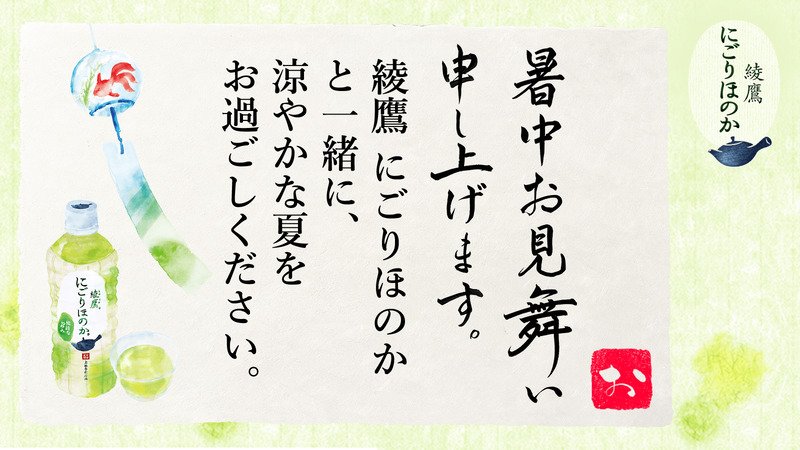 暑中お見舞い
申し上げます。
綾鷹 にごりほのか
と一緒に、
涼やかな夏を
お過ごしください。
お
綾鷹
にごりほのか
綾鷹
にごりほのか